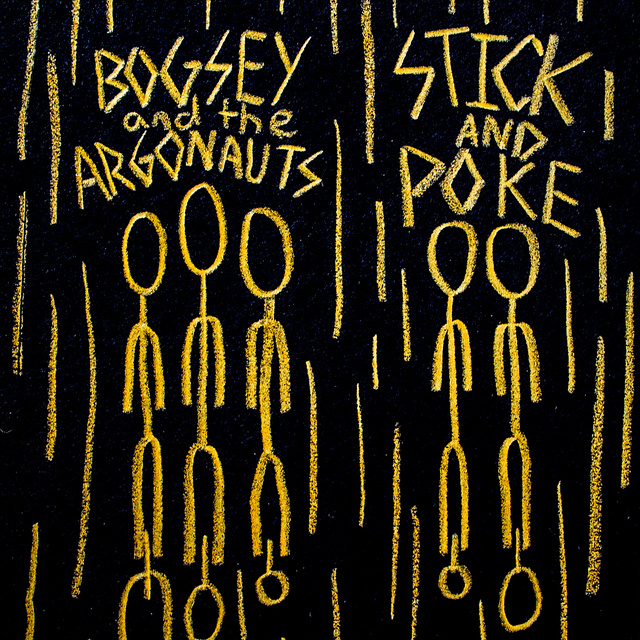 BOGSEY
and the
ARGONAUTS
STICK
AND
POKE